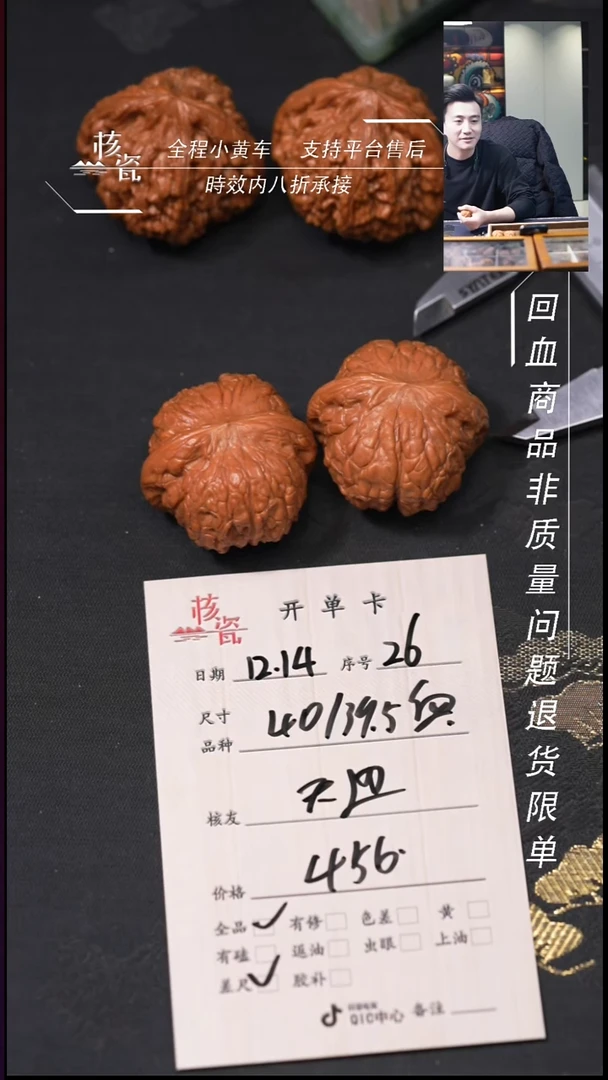 核瓷
全程小黄车 支持平台售后
時效内八折承接
回血商品非质量问题退货限单
核瓷
开单卡
日期 12.14 序号 26
尺寸
品种 40/39.5
核友
价格 456.
全品 有修 色差 黄
有磕 返油 虫眼 上油
差尺 胶补
QIC中心 备注